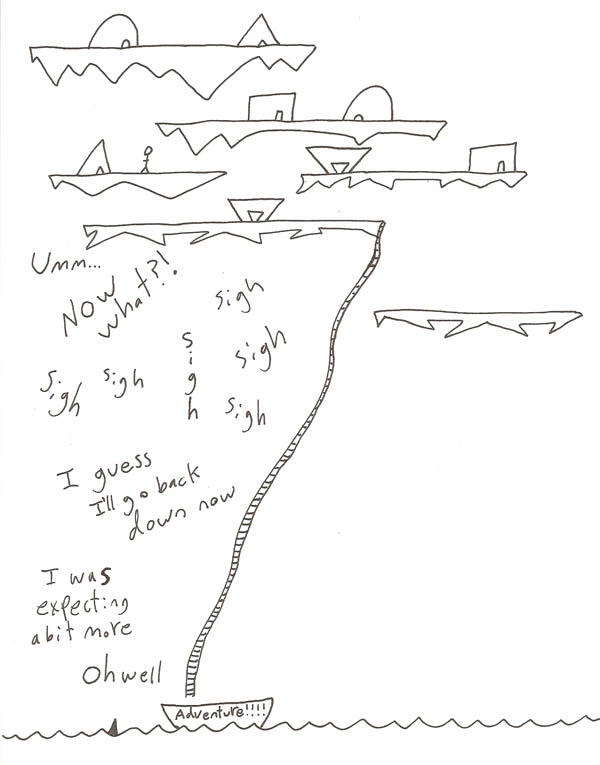 Umm...
Now
what?!
sigh
sigh
sigh
sigh
sigh
sigh
I guess
I'll go back
down now
I was
expecting
a bit more
Oh well
Adventure!!!!